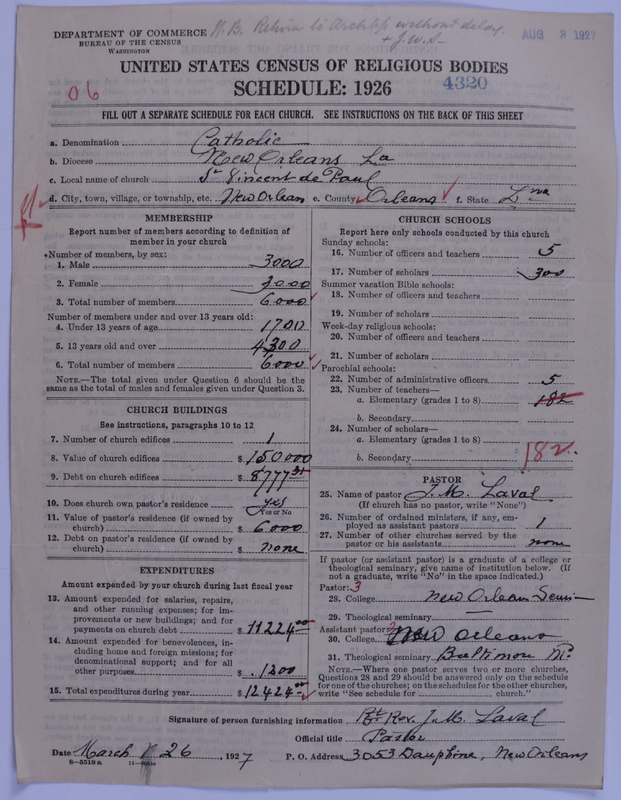 N.B. Return to Archbp without delay.
+ J.W.S-
AUG 8 1927
DEPARTMENT OF COMMERCE
BUREAU OF THE CENSUS
WASHINGTON
UNITED STATES CENSUS OF RELIGIOUS BODIES
SCHEDULE: 1926
06
4320
FILL OUT A SEPARATE SCHEDULE FOR EACH CHURCH. SEE INSTRUCTIONS ON THE BACK OF THIS SHEET
a. Denomination Catholic
b. Diocese New Orleans La
c. Local name of church St Vincent de Paul
d. City, town, village, or township, etc. New Orleans e. County Orleans f. State Lna
MEMBERSHIP
Report number of members according to definition of
member in your church
Number of members, by sex:
1. Male 3000
2. Female 3000
3. Total number of members 6000
Number of members under and over 13 years old:
4. Under 13 years of age 1700
5. 13 years old and over 4300
6. Total number of members 6000
NOTE.—The total given under Question 6 should be the
same as the total of males and females given under Question 3.
CHURCH BUILDINGS
See instructions, paragraphs 10 to 12
7. Number of church edifices 1
8. Value of church edifices $ 150,000
9. Debt on church edifices $ 8777 31
10. Does church own pastor's residence yes
Yes or No
11. Value of pastor's residence (if owned by
church) $ 6000
12. Debt on pastor's residence (if owned by
church) $ none
EXPENDITURES
Amount expended by your church during last fiscal year
13. Amount expended for salaries, repairs,
and other running expenses; for im-
provements or new buildings; and for
payments on church debt $ 11224 00
14. Amount expended for benevolences, in-
cluding home and foreign missions; for
denominational support; and for all
other purposes $ 1200
15. Total expenditures during year $ 12424 00
CHURCH SCHOOLS
Report here only schools conducted by this church
Sunday schools:
16. Number of officers and teachers 5
17. Number of scholars 300
Summer vacation Bible schools:
18. Number of officers and teachers
19. Number of scholars
Week-day religious schools:
20. Number of officers and teachers
21. Number of scholars
Parochial schools:
22. Number of administrative officers 5
23. Number of teachers—
a. Elementary (grades 1 to 8) 182
b. Secondary
24. Number of scholars—
a. Elementary (grades 1 to 8) 182.
b. Secondary
PASTOR
25. Name of pastor J. M. Laval
(If church has no pastor, write "None")
26. Number of ordained ministers, if any, em-
ployed as assistant pastors 1
27. Number of other churches served by the
pastor or his assistants none
If pastor (or assistant pastor) is a graduate of a college or
theological seminary, give name of institution below. (If
not a graduate, write "No" in the space indicated.)
Pastor: 3
28. College New Orleans Semi-
29. Theological seminary
Assistant pastor:
30. College New Orleans
31. Theological seminary Baltimore Md
NOTE.—Where one pastor serves two or more churches,
Questions 28 and 29 should be answered only on the schedule
for one of the churches; on the schedules for the other churches,
write "See schedule for church."
Signature of person furnishing information Rt Rev. J. M. Laval
Official title Pastor
Date March 26, 1927 P. O. Address 3053 Dauphine, New Orleans
8-5518a